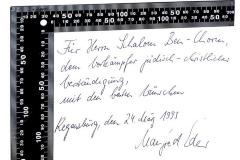 Für Herrn Schalom Ben-Chorin,
dem Vorkämpfer jüdisch-christlicher
Verständigung,
mit den besten Wünschen
Regensburg, den 24. März 1995
Manfred Eder